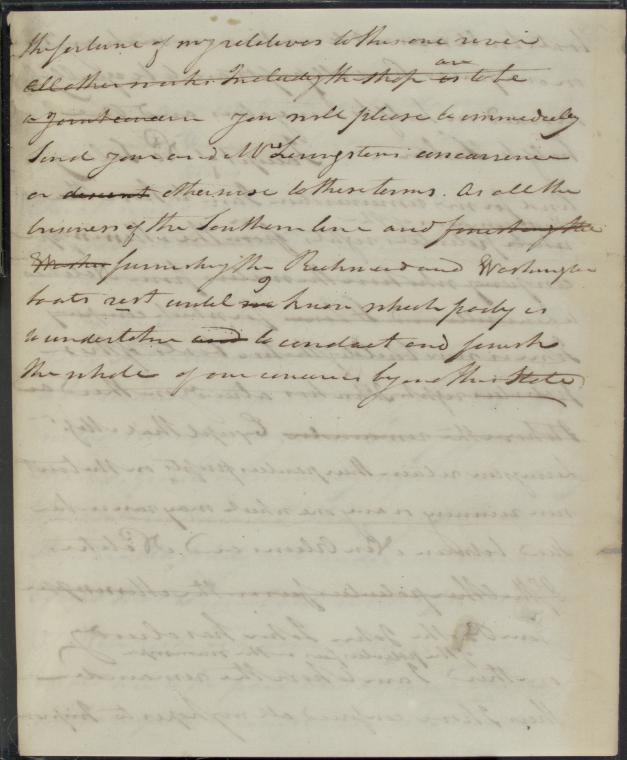 the fortune of my relatives to this one river
all other works Including the shop are is to be
a Joint concern you will please be immediately
Send your and Mr Livingstons concurrence
or descent otherwise to these terms. As all the
business of the Southern line and finishing the
furnishing the Richmond and Washington
boats rest until I know which party is
to undertake and to conduct and finish
the whole of our concerns beyond this State